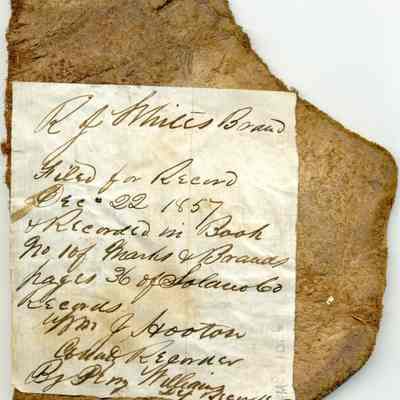 R J White's Brand
Filed for Record
Dec 22 1857
& Recorded in Book
No 1 of Marks & Brands
pages 36 of Solano Co
Records
Wm J Hooton
County Recorder
By Perry Williams